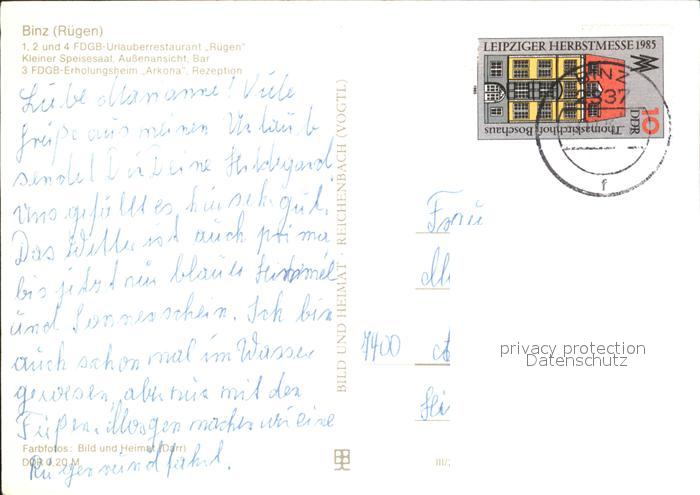 Binz (Rügen)
1, 2 und 4 FDGB-Urlauberrestaurant „Rügen"
Kleiner Speisesaal, Außenansicht, Bar
3 FDGB-Erholungsheim „Arkona", Rezeption
Liebe Marianne! Viele
Grüße aus meinen Urlaub
sendet Dir Deine Hildegard
Uns gefällt es hier sehr gut.
Das Wetter ist auch prima
bis jetzt nur blauer Himmel
und Sonnenschein. Ich bin
auch schon mal im Wasser
gewesen, aber nur mit den
Füßen. Morgen machen wir eine
Rügenrundfahrt.
Farbfotos: Bild und Heimat (Darr)
DDR 0,20 M
BILD UND HEIMAT · REICHENBACH (VOGTL)
III/
LEIPZIGER HERBSTMESSE 1985
Thomaskirchhof, Boschaus
DDR
10
1985
BINZ
2337
f
Frau
7400
privacy protection
Datenschutz